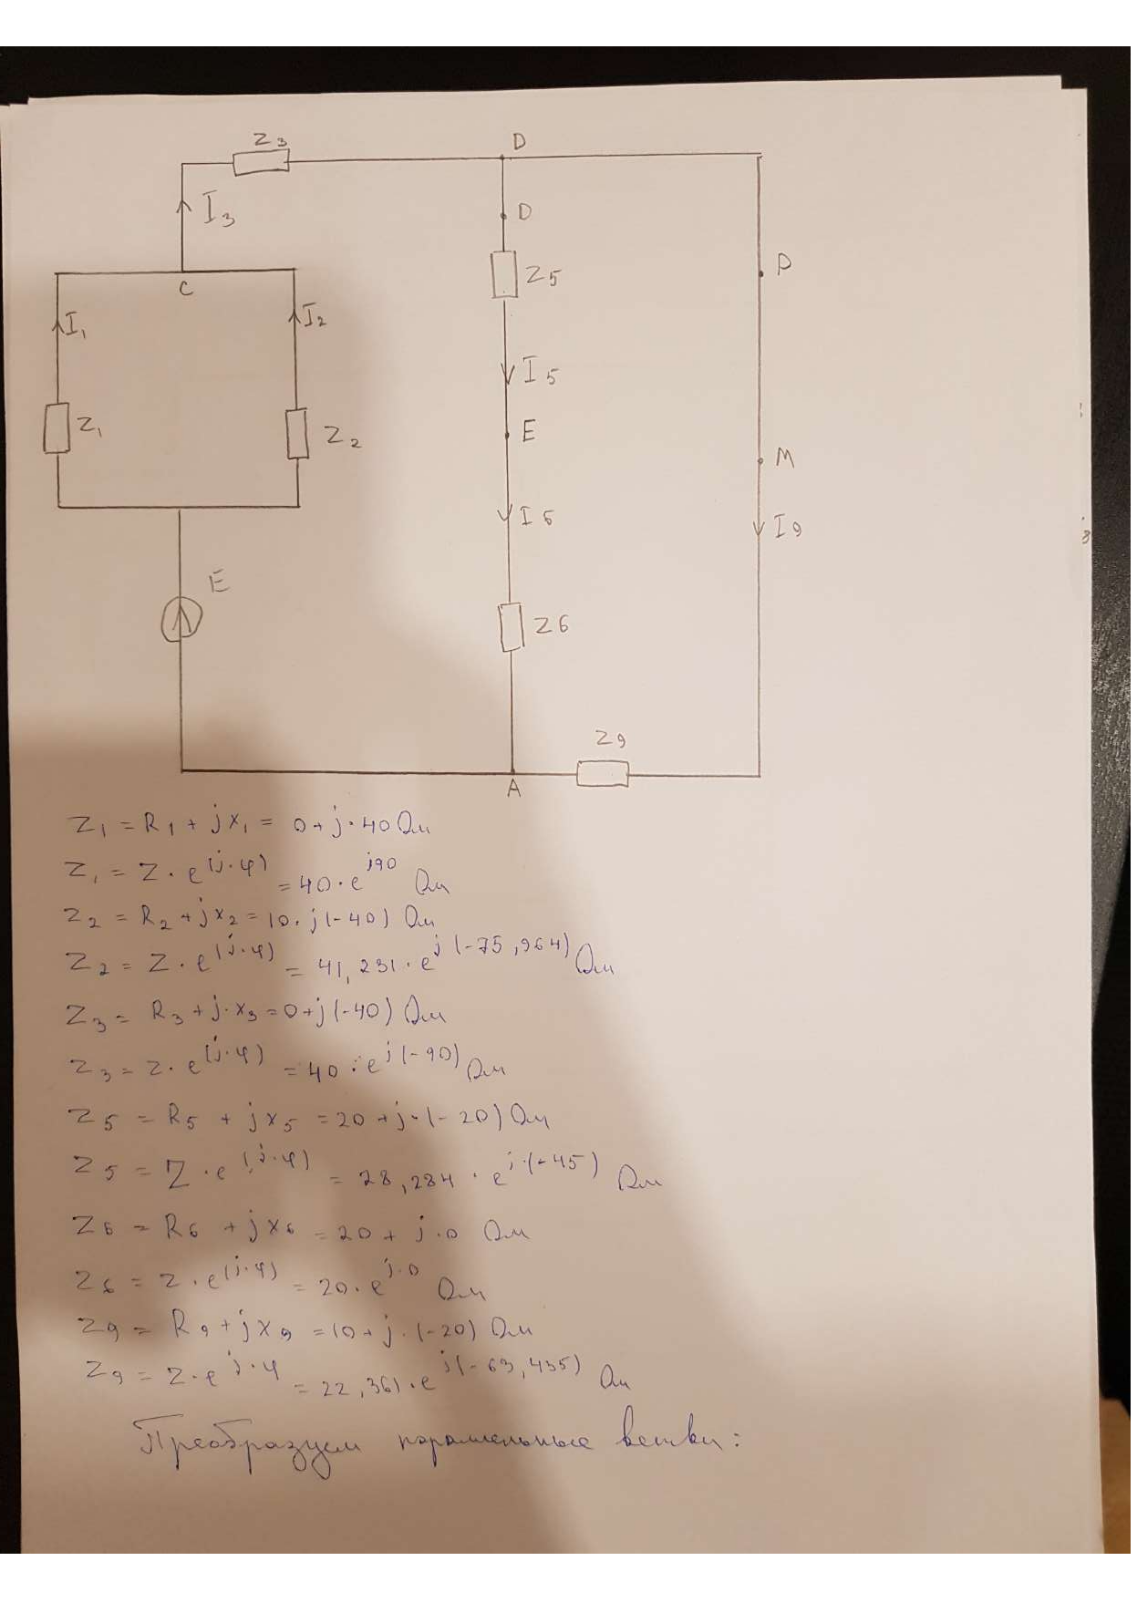 Z3
D
I3
D
Z5
P
C
I1
I2
I5
Z1
Z2
E
M
I6
I9
E
Z6
Z9
A
Z1 = R1 + jX1 = 0 + j·40 Ом
Z1 = Z·e^(j·φ) = 40·e^j90 Ом
Z2 = R2 + jX2 = 10. j(-40) Ом
Z2 = Z·e^(j·φ) = 41,231·e^j(-75,964) Ом
Z3 = R3 + j·X3 = 0 + j(-40) Ом
Z3 = Z·e^(j·φ) = 40·e^j(-90) Ом
Z5 = R5 + jX5 = 20 + j·(-20) Ом
Z5 = Z·e^(j·φ) = 28,284·e^j·(-45) Ом
Z6 = R6 + jX6 = 20 + j·0 Ом
Z6 = Z·e^(j·φ) = 20·e^j·0 Ом
Z9 = R9 + jX9 = 10 + j·(-20) Ом
Z9 = Z·e^j·φ = 22,361·e^j(-63,435) Ом
Преобразуем параллельные ветви: